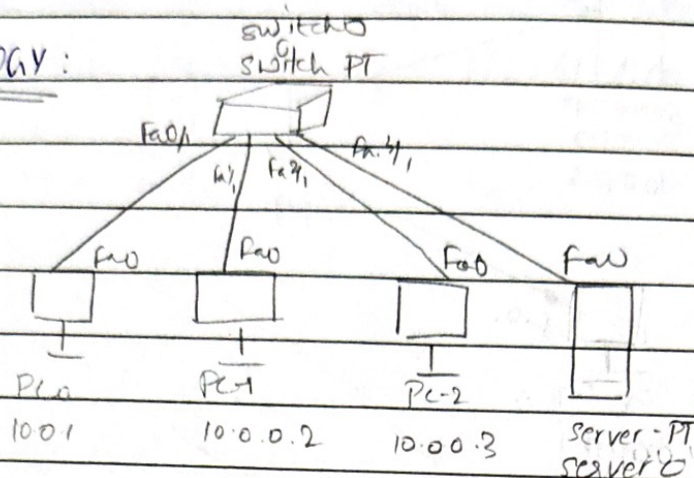 switch 0
OGY :
switch PT
Fa0/1
Fa1/1
Fa2/1
Fa.3/1
Fa0
Fa0
Fa0
Fa0
PC-1
PC-2
10.0.1
10.0.0.2
10.00.3
server-PT
server 0